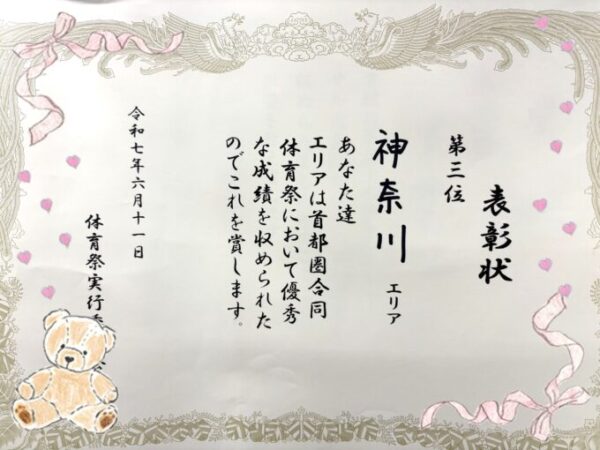 表彰状
第三位
神奈川エリア
あなた達
エリアは首都圏合同
体育祭において優秀
な成績を収められた
のでこれを賞します。
令和七年六月十一日
体育祭実行